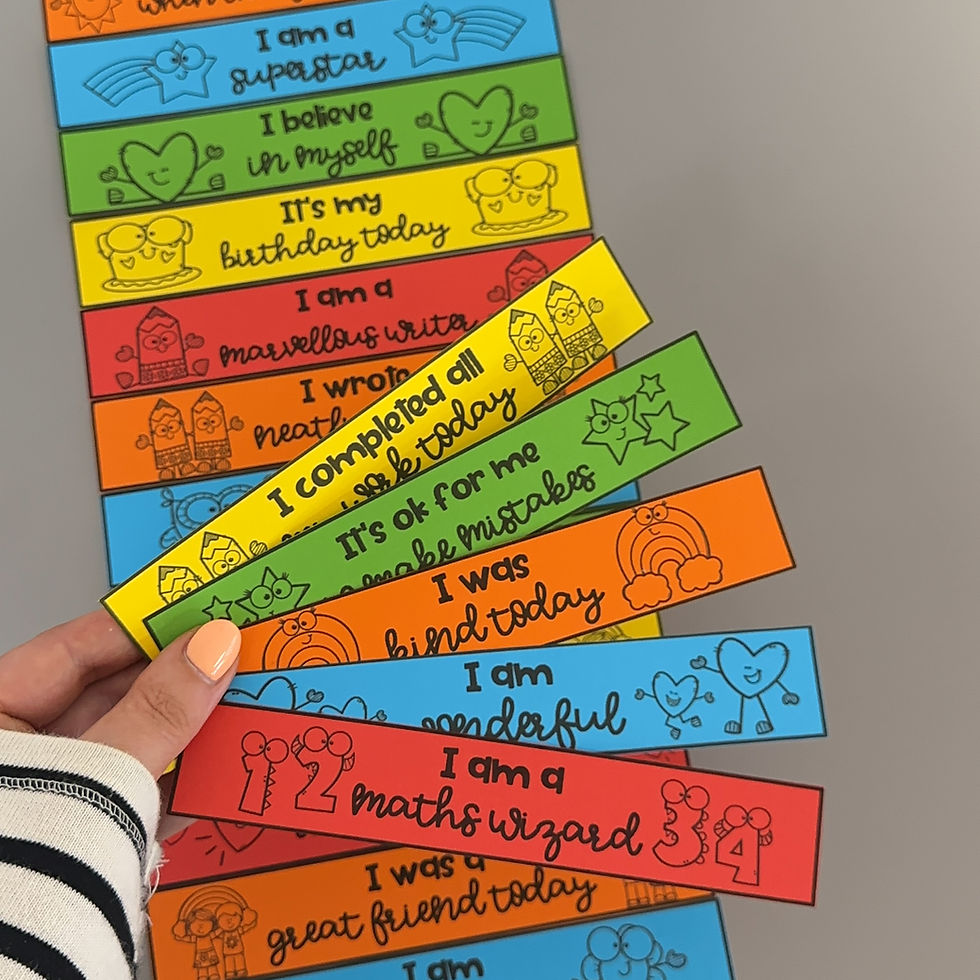 I am a
superstar
I believe
in myself
It's my
birthday today
I am a
marvellous writer
I wrote
I completed all
work today
It's ok for me
make mistakes
I was
kind today
I am
wonderful
I am a
maths wizard
1 2 3 4
I was a
great friend today
I am